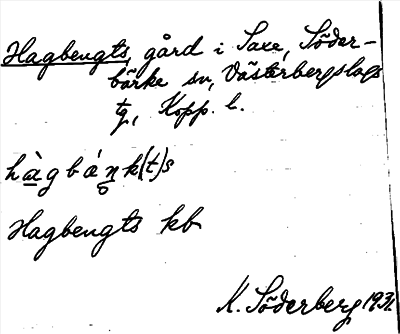 Hagbengts, gård i Saxe, Söder-
bärke sn, Västerbergslags
tg, Kopp. l.
hàgbáŋk(t)s
Hagbengts kb
K. Söderberg 1931